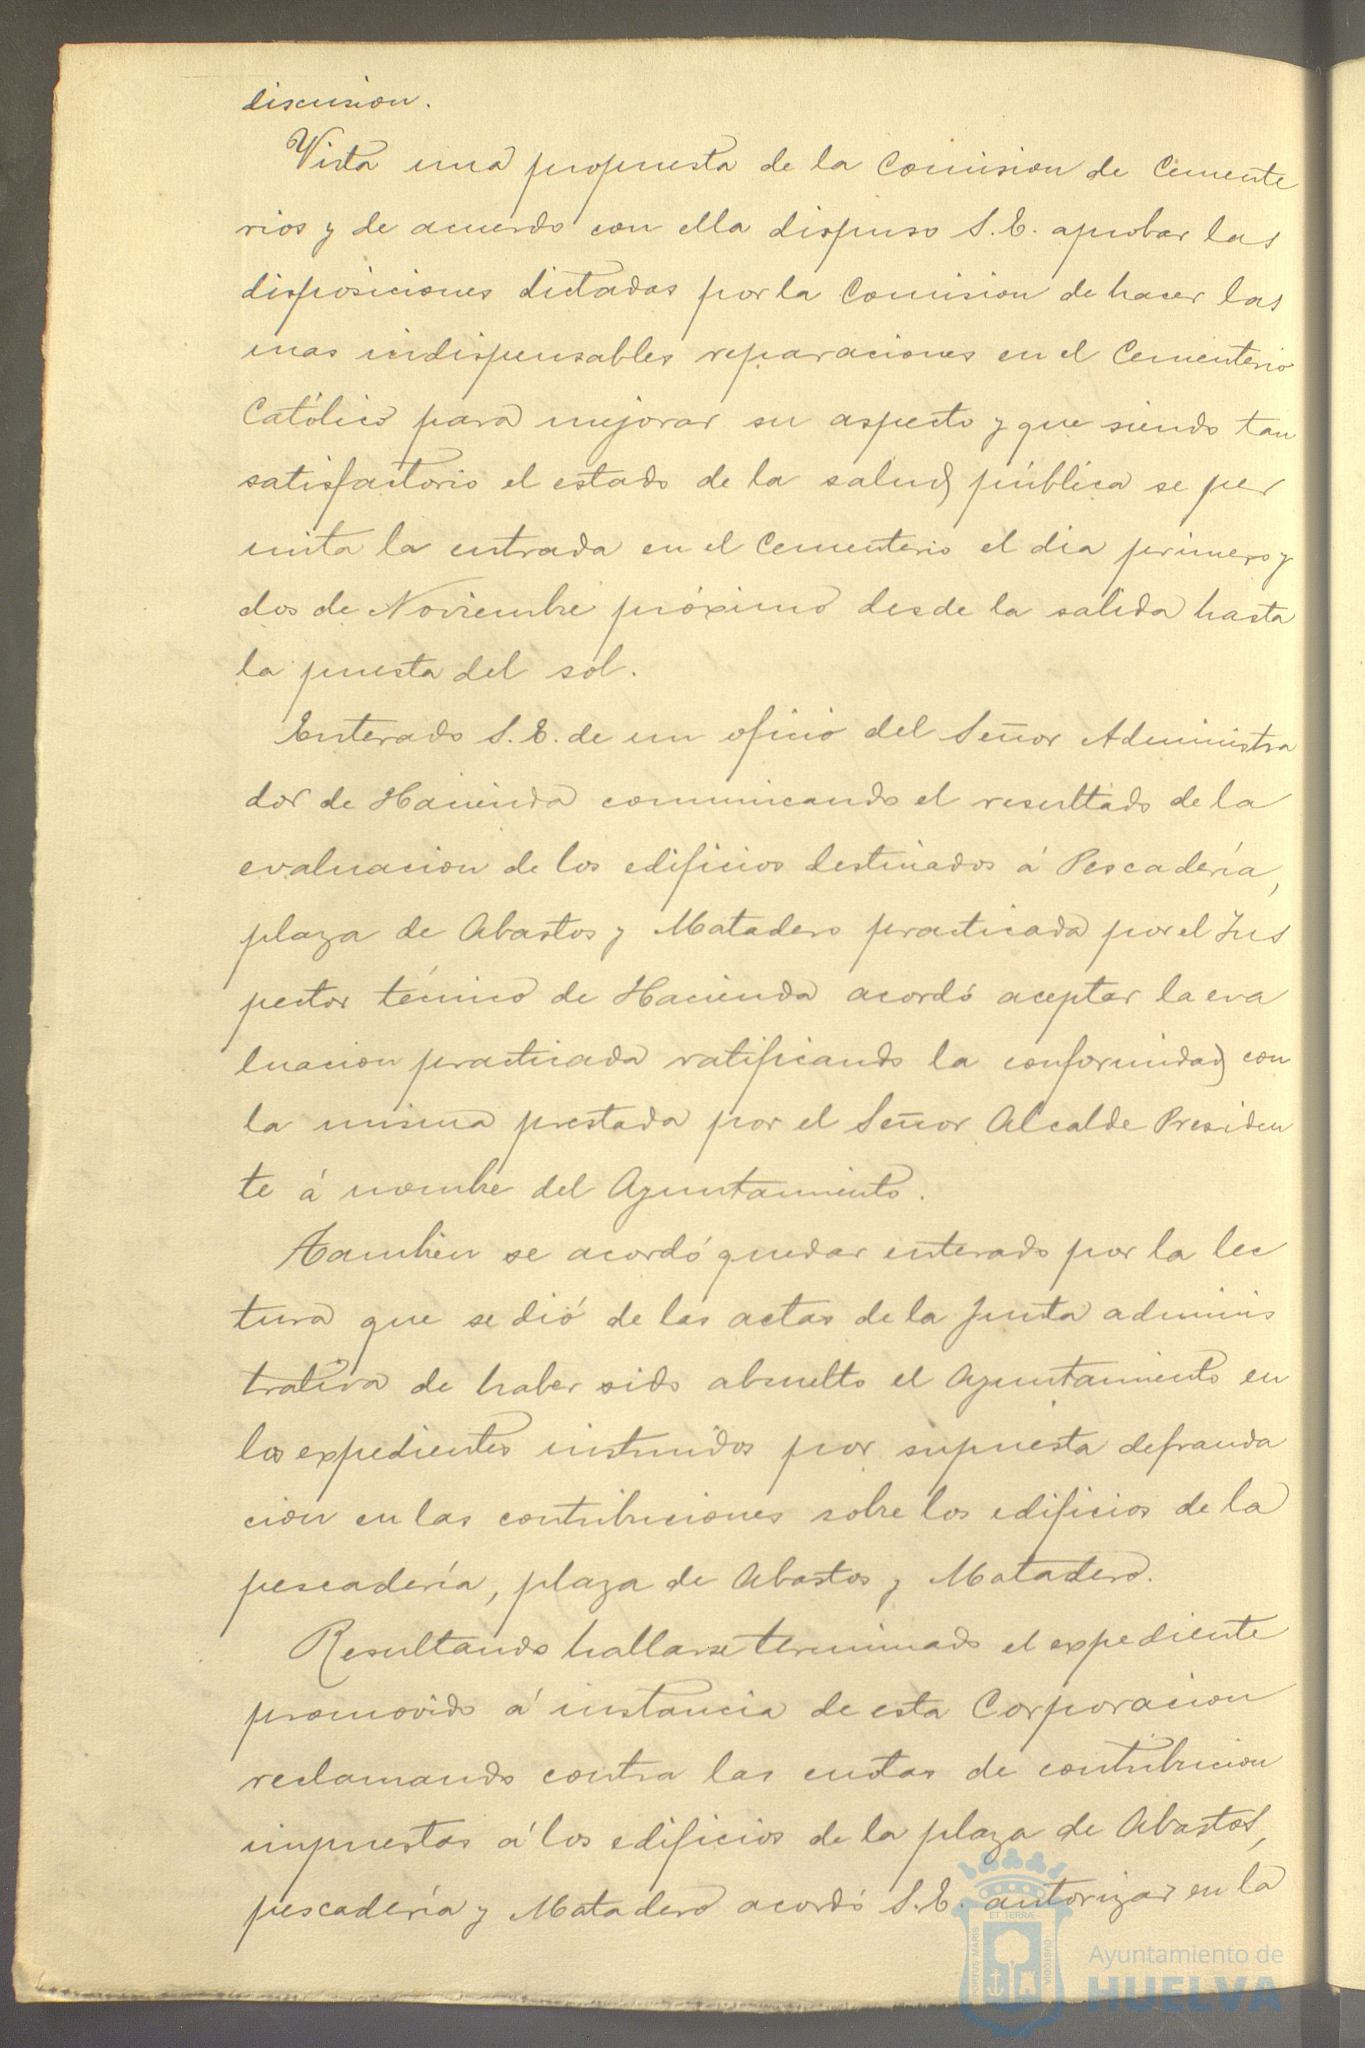 discusion.
Vista una propuesta de la Comision de Cemente
rios y de acuerdo con ella dispuso S. E. aprobar las
disposiciones dictadas por la Comision de hacer las
mas indispensables reparaciones en el Cementerio
Católico para mejorar su aspecto y que siendo tan
satisfactorio el estado de la salud pública se per
mita la entrada en el Cementerio el dia primero y
dos de Noviembre próximo desde la salida hasta
la puesta del sol.
Enterado S. E. de un oficio del Señor Administra
dor de Hacienda comunicando el resultado de la
evaluacion de los edificios destinados á Pescadería,
plaza de Abastos y Matadero practicada por el Ins
pector técnico de Hacienda acordó aceptar la eva
luacion practicada ratificando la conformidad con
la misma prestada por el Señor Alcalde Presiden
te á nombre del Ayuntamiento.
Tambien se acordó quedar enterado por la lec
tura que se dió de las actas de la Junta adminis
trativa de haber sido absuelto el Ayuntamiento en
los expedientes instruidos por supuesta defrauda
cion en las contribuciones sobre los edificios de la
pescadería, plaza de Abastos y Matadero.
Resultando hallarse terminado el expediente
promovido á instancia de esta Corporacion
reclamando contra las cuotas de contribucion
impuestas á los edificios de la plaza de Abastos,
pescadería y Matadero acordó S. E. autorizar en la
PORTUS MARIS
ET TERRÆ
CUSTODIA
Ayuntamiento de
HUELVA